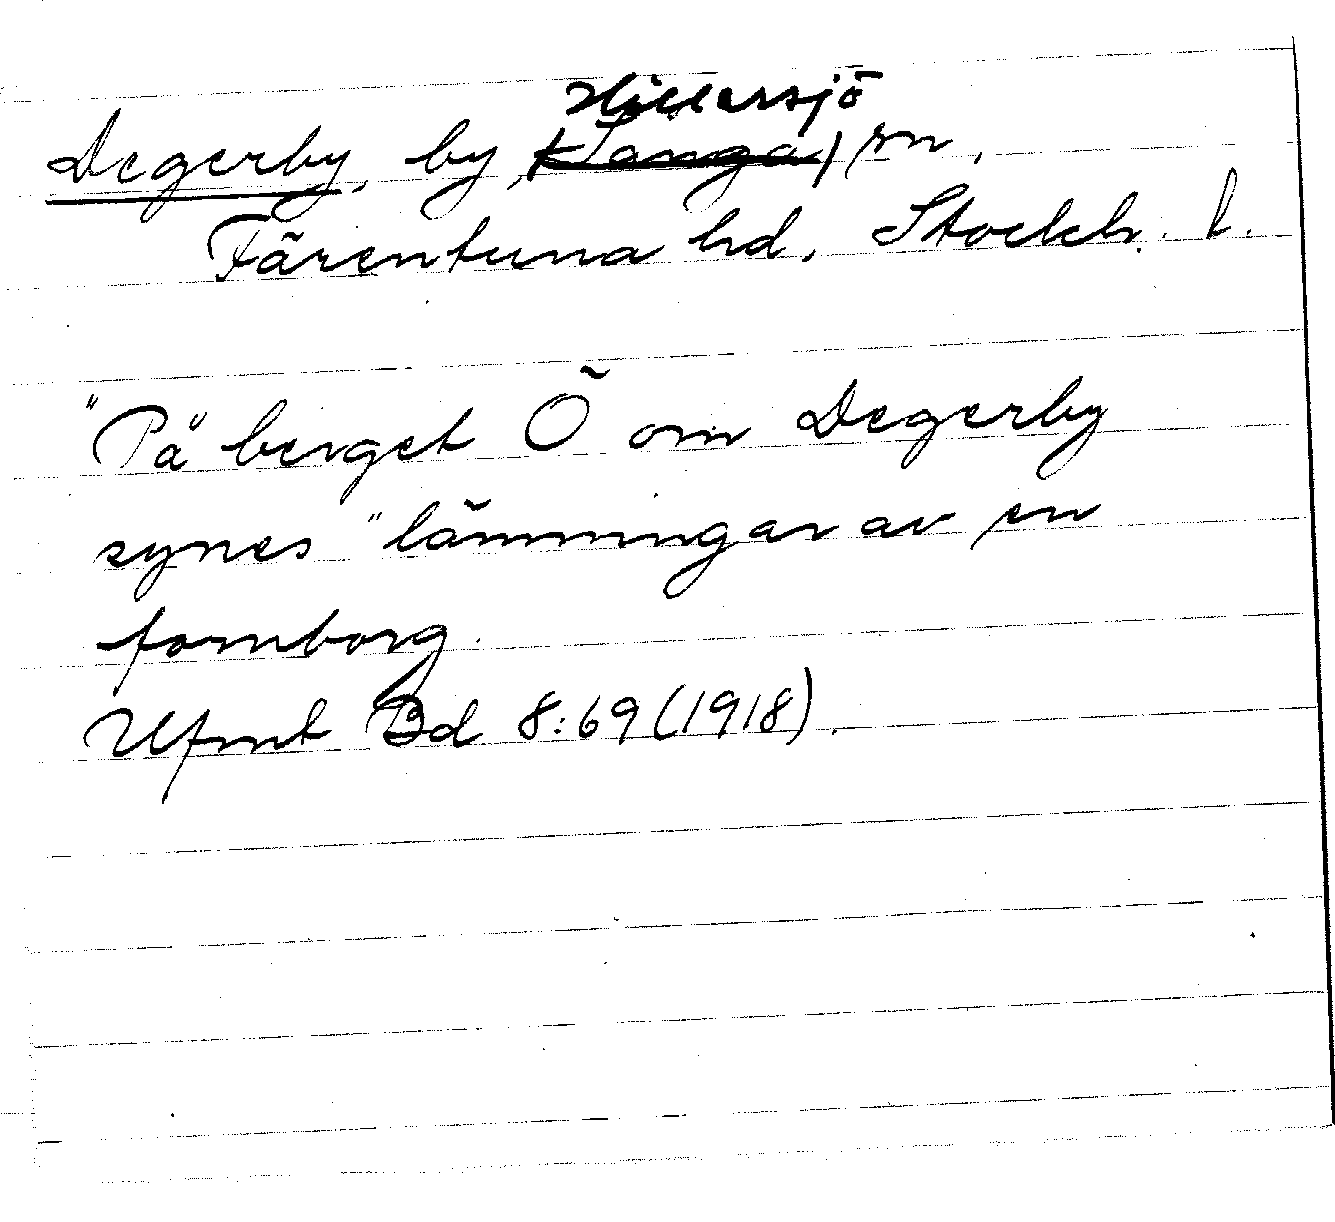 Hillersjö
Degerby, by, (Sånga) sn,
Färentuna hd, Stockh. l.
"På berget Ö om Degerby
synes" lämningar av en
fornborg.
Ufmt Bd 8:69 (1918).